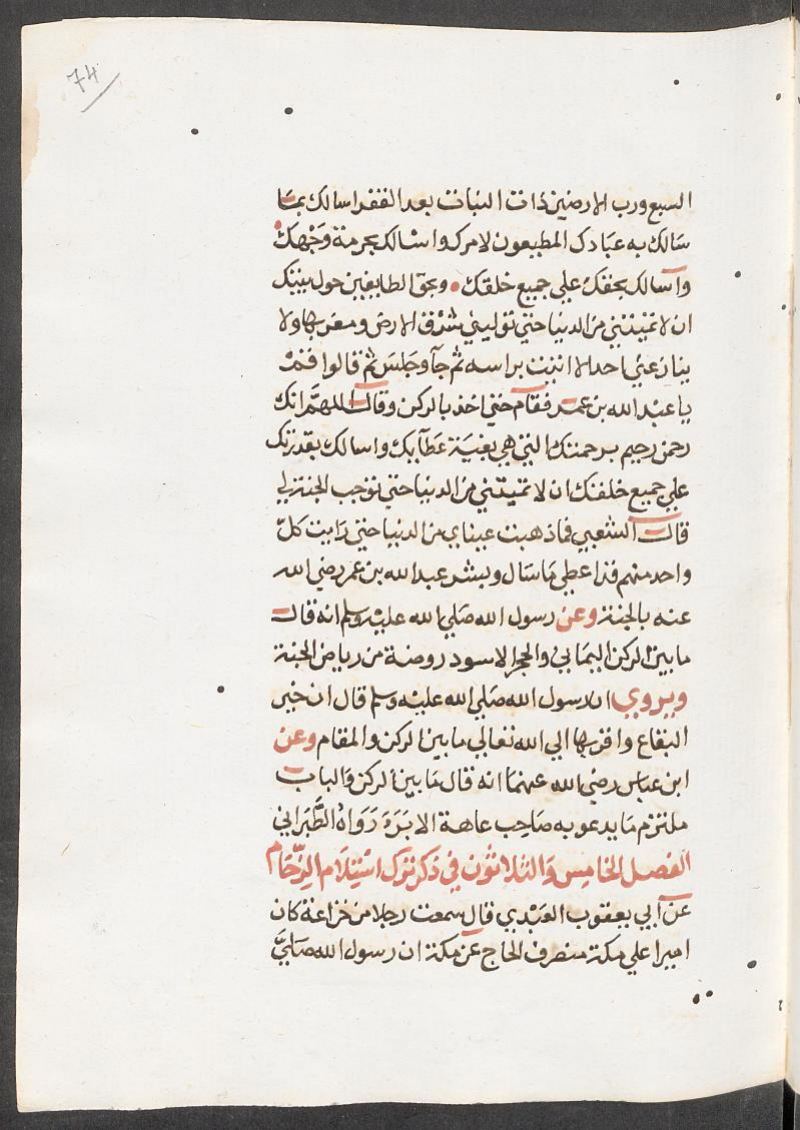 74
السبع ورب الارضين ذات النبات بعد القفر اسالك بما
سَالك به عبادك المطيعون لامرك واسالك بحرمة وَجْهك
واسالك بحقك علي جميع خلقك وبحق الطايفين حول بيتك
ان لا تميتني من الدنيا حتي توليني شرق الارض ومغربها ولا
ينازعني احد الا اتيت براسه ثم جآ وجلسَ ثم قالوا قم
يا عبد الله بن عمر فقام حتي اخذ بالركن وقال اللهمَّ انك
رحمن رحيم برحمتك التي هي بغية عَطآيك واسالك بقدرتك
علي جميع خلقك ان لا تميتني من الدنيا حتي توجب الجنة لي
قال الشعبي فما ذهبت عيناي من الدنيا حتي رَايت كلّ
واحد منهم قد اعطي مَا سَال وبشر عبد الله بن عمر رضي الله
عنه بالجنة وعن رسول الله صَلي الله عليه وسلم انه قال
ما بين الركن اليمَاني والحجر الاسود روضة من رياض الجنة
ويروي ان رسول الله صَلي الله عليه وسلم قال ان خير
البقاع واقربها الي الله تعالي ما بين الركن والمقام وعن
ابن عباس رضي الله عنهما انه قال مَا بين الركن وَالباب
ملتزم مَا يدعو به صَاحِب عاهة الا بَرَءَ رَوَاهُ الطَّبَراني
الفصل الخامِس وَالثلاثون في ذكر ترك اسْتِلَام الزّحَام
عن ابي يعقوب العَبْدي قال سمعت رجلا من خزاعة كان
اميرا علي مكة منصرف الحاج عن مكة ان رسول الله صَليَّ